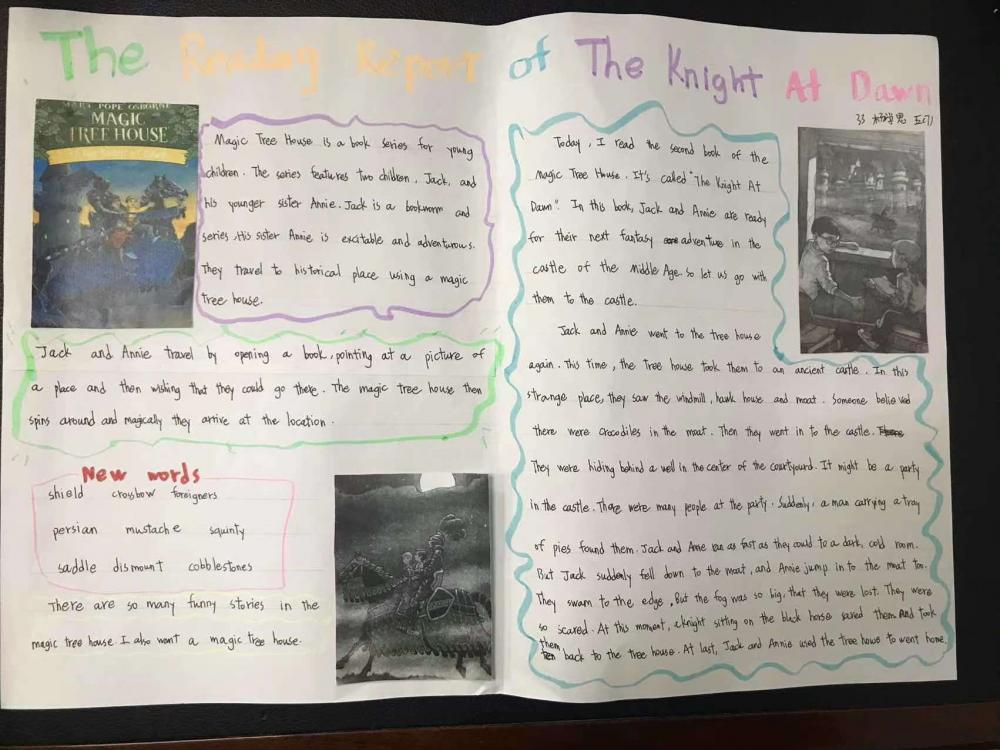 The Reading Report of The Knight At Dawn
MARY POPE OSBORNE
MAGIC
TREE HOUSE
Magic Tree House is a book series for young
children. The series features two children, Jack, and
his younger sister Annie. Jack is a bookworm and
series. His sister Annie is excitable and adventurous.
They travel to historical place using a magic
tree house.
Jack and Annie travel by opening a book, pointing at a picture of
a place and then wishing that they could go there. The magic tree house then
spins around and magically they arrive at the location.
New words
shield crossbow foreigners
persian mustache squinty
saddle dismount cobblestones
There are so many funny stories in the
magic tree house. I also want a magic tree house.
33
Today, I read the second book of the
Magic Tree House. It's called "The Knight At
Dawn". In this book, Jack and Annie are ready
for their next fantasy adventure in the
castle of the Middle Age. So let us go with
them to the castle.
Jack and Annie went to the tree house
again. This time, the Tree house took them to an ancient castle. In this
strange place, they saw the windmill, hawk house and moat. Someone believed
there were crocodiles in the moat. Then they went in to the castle.
They were hiding behind a well in the center of the courtyourd. It might be a party
in the castle. There were many people at the party. Suddenly, a man carrying a tray
of pies found them. Jack and Annie ran as fast as they could to a dark, cold room.
But Jack suddenly fell down to the moat, and Annie jump in to the moat too.
They swam to the edge, But the fog was so big, that they were lost. They were
so scared. At this moment, a knight sitting on the black horse saved them. And took
them back to the tree house. At last, Jack and Annie used the tree house to went home.